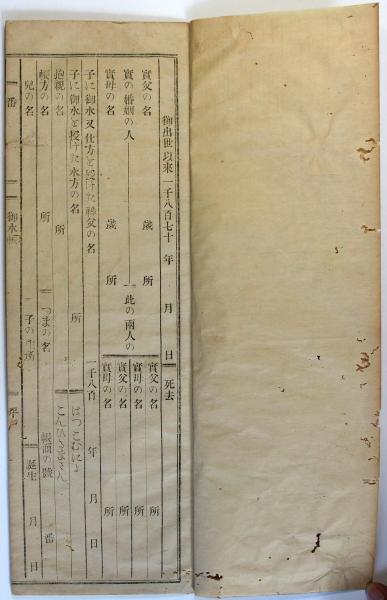 御出世以來一千八百七十 年 月 日 死去
實父の名 歳 所 實父の名 所
實の婚姻の人 此の兩人の 實母の名 所
實母の名 歳 所 實父の名 所
實母の名 所
子に御水又仕方を授けた神父の名 一千八百 年 月 日
子に御水を授けた水方の名 所 ばつこむに
抱親の名 所 こんひさまさん
帳方の名 所 つまの名 帳面の號 番
兒の名 子の 所 誕生 月 日
一番 御水帳